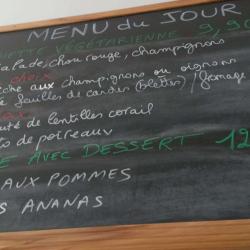 MENU du JOUR
IETTE VÉGÉTARIENNE 9,9
alade, chou rouge, champignons
choix
che aux champignons ou oignons
é feuilles de cardes (blettes) / fromage
uté de lentilles corail
s de poireaux
E AVEC DESSERT 12
AUX POMMES
S ANANAS